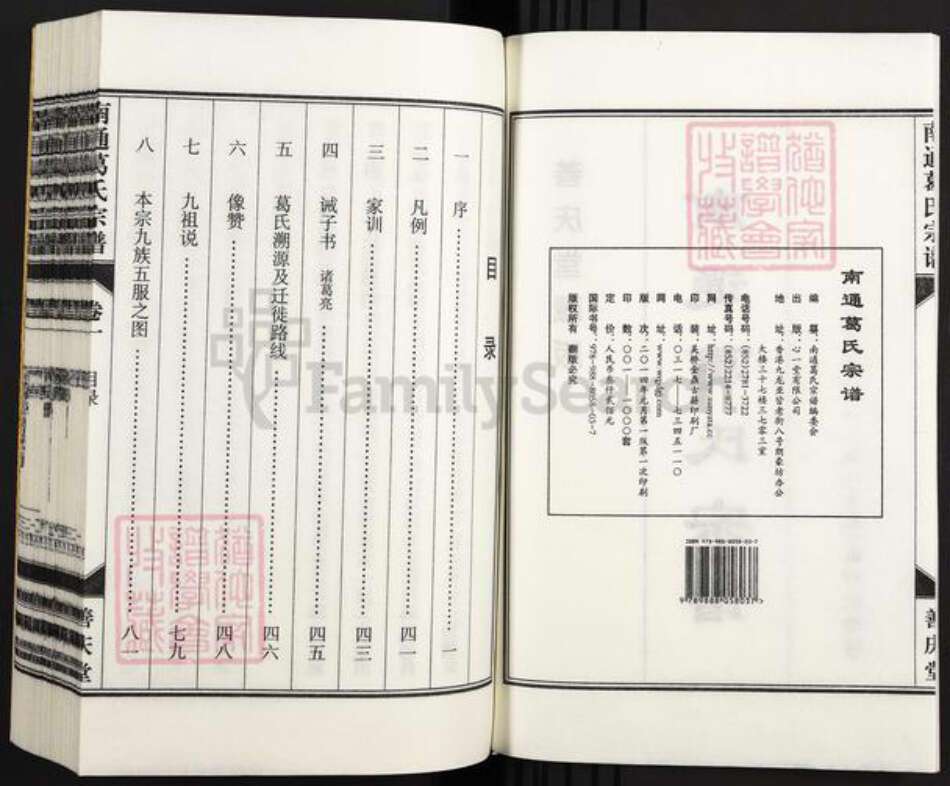 南通葛氏宗谱
南通葛氏宗谱
编纂：南通葛氏宗谱编委会
出版：心一堂有限公司
地址：香港九龙旺角老街八号朗豪坊办公
大楼三十七楼三七零三室
电话号码：(852)2781-3722
传真号码：(852)2214-8777
网址：http://www.sunyata.cc
印装：吴桥金鼎古籍印刷厂
电话：〇三一七-七三四五一一〇
网址：www.wqjdgj.com
版次：二〇一四年元月第一版第一次印刷
印数：〇〇〇一-一〇〇〇套
定价：人民币叁仟贰佰元
国际书号：978-988-8058-03-7
版权所有 翻版必究
ISBN 978-988-8058-03-7
9789888058037
善庆堂
目录
一 序 一
二 凡例 四一
三 家训 四三
四 诫子书 诸葛亮 四五
五 葛氏溯源及迁徙路线 四六
六 像赞 四八
七 九祖说 七九
八 本宗九族五服之图 八一
南通葛氏宗谱
卷一
目录
善庆堂
FamilySearch